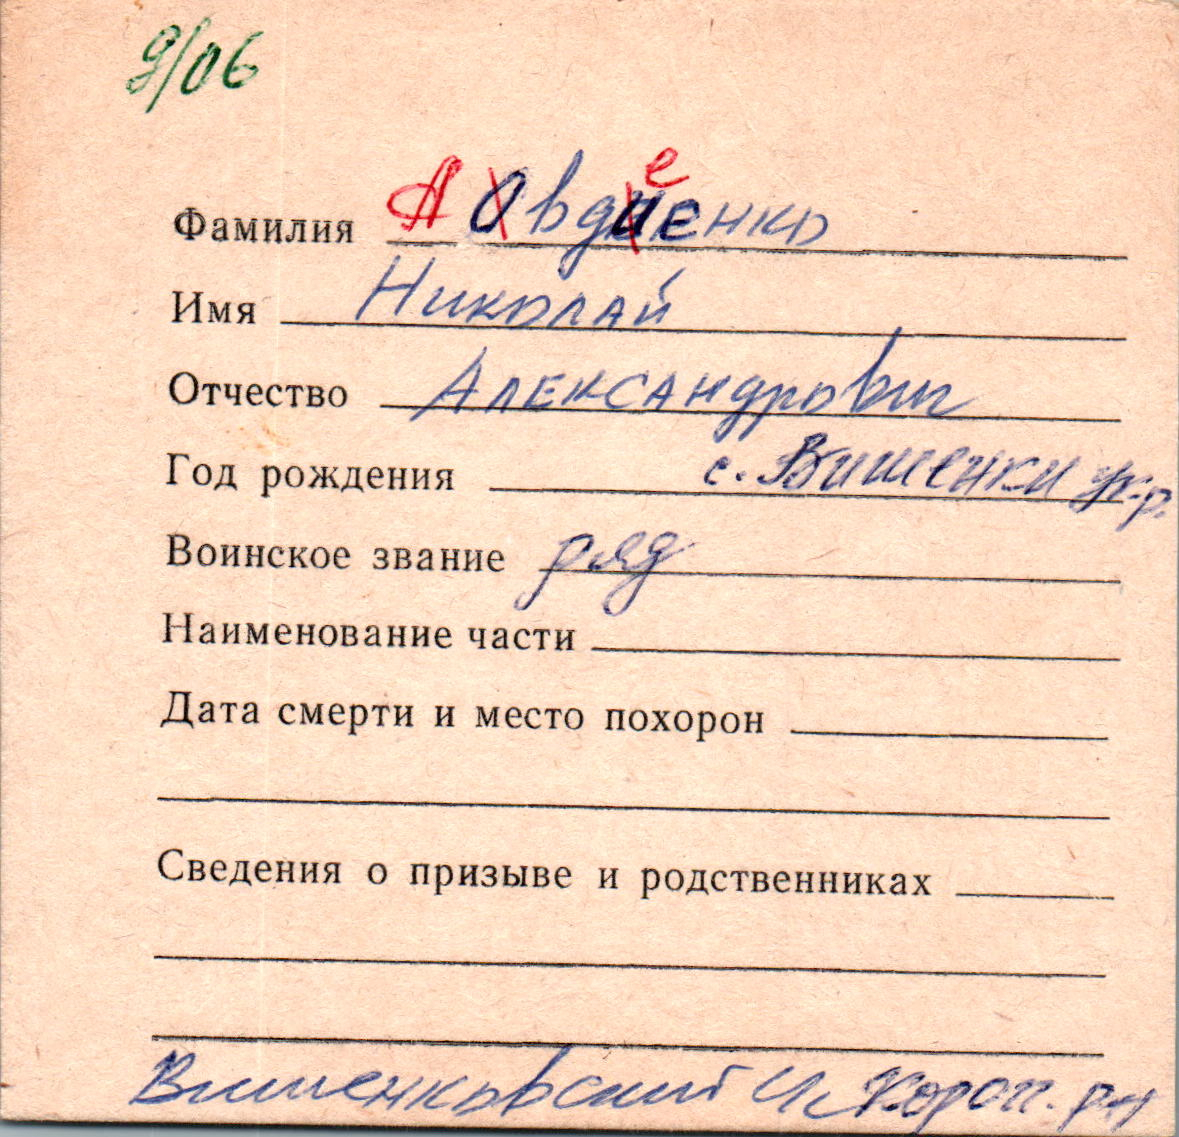 9/06
Фамилия А Овдиенко е
Имя Николай
Отчество Александрович
Год рождения с. Вишенки ук.р.
Воинское звание ряд
Наименование части
Дата смерти и место похорон
Сведения о призыве и родственниках
Вишенковский Короп. р-н